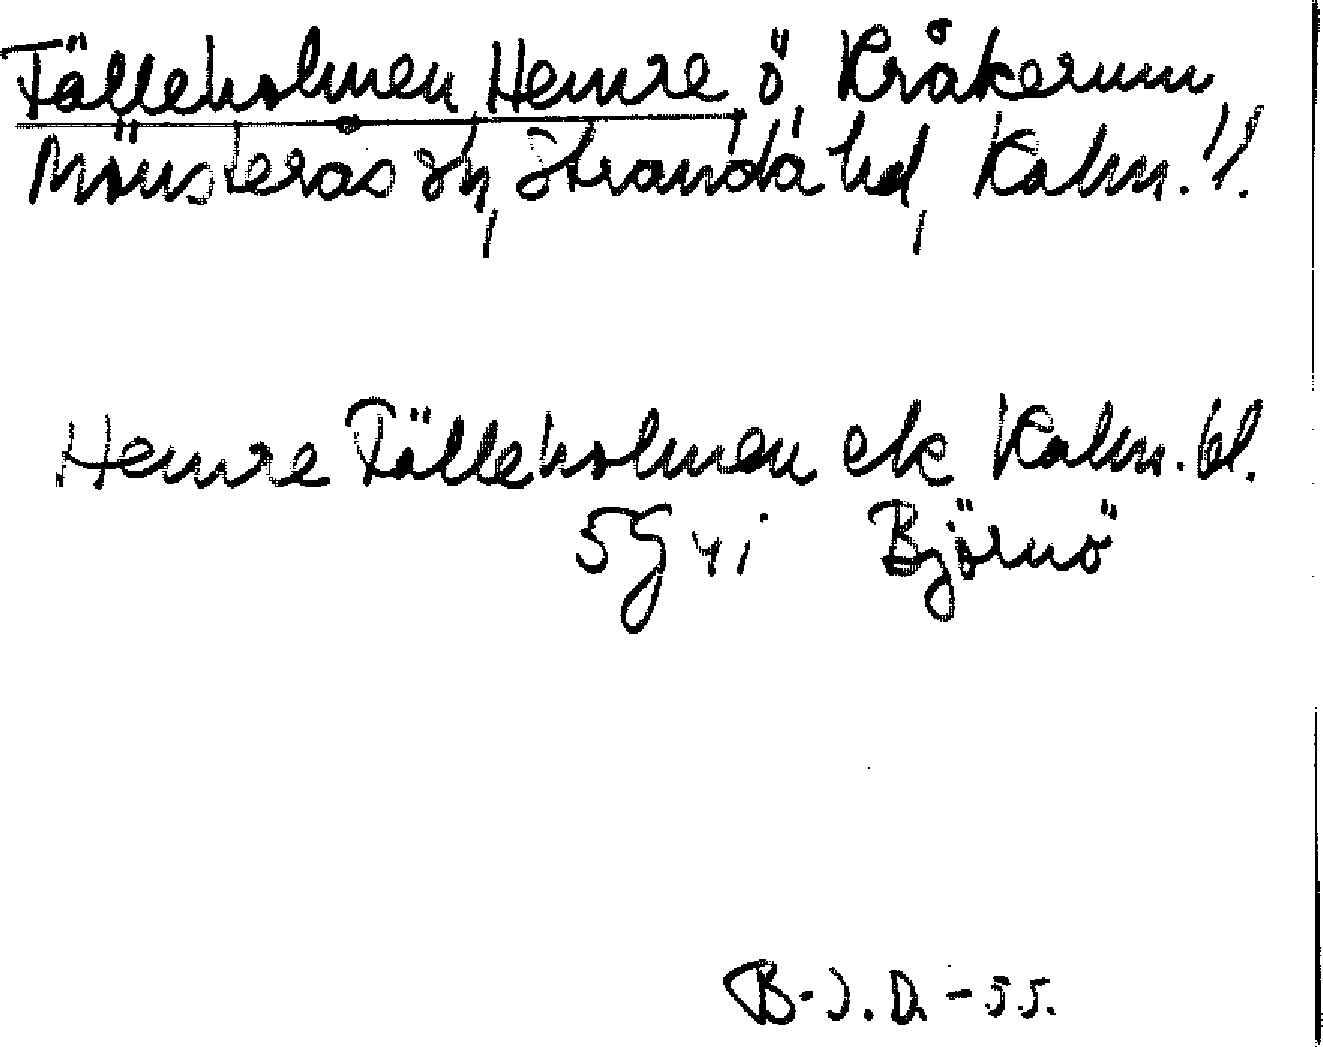 Tälleholmen, Hemre, ö, Kråkerum,
Mönsterås sn, Stranda hd, Kalm. l.
Hemre Tälleholmen ek Kalm. bl.
5G Björnö
B-J.D. -55.